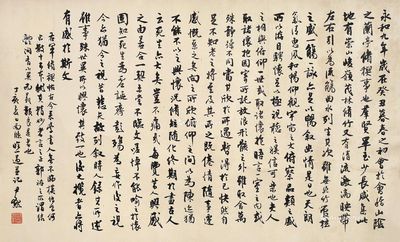 永和九年歲在癸丑暮春之初會于會稽山陰
之蘭亭脩禊事也羣賢畢至少長咸集此
地有崇山峻領茂林脩竹又有清流激湍映帶
左右引以為流觴曲水列坐其次雖無絲竹管弦
之盛一觴一詠亦足以暢敘幽情是日也天朗
氣清惠風和暢仰觀宇宙之大俯察品類之盛
所以遊目騁懷足以極視聽之娛信可樂也夫人
之相與俯仰一世或取諸懷抱悟言一室之內或
因寄所託放浪形骸之外雖趣舍萬
殊靜躁不同當其欣於所遇暫得於己快然自
足不知老之將至及其所之既惓情隨事遷
感慨係之矣向之所欣俛仰之間以為陳迹猶
不能不以之興懷況脩短隨化終期於盡古人
云死生亦大矣豈不痛哉每攬昔人興感
之由若合一契未嘗不臨文嗟悼不能喻之於懷
固知一死生為虛誕齊彭殤為妄作後之視
今亦由今之視昔悲夫故列敘時人錄其所述
雖世殊事異所以興懷其致一也後之攬者亦將
有感於斯文
尹默